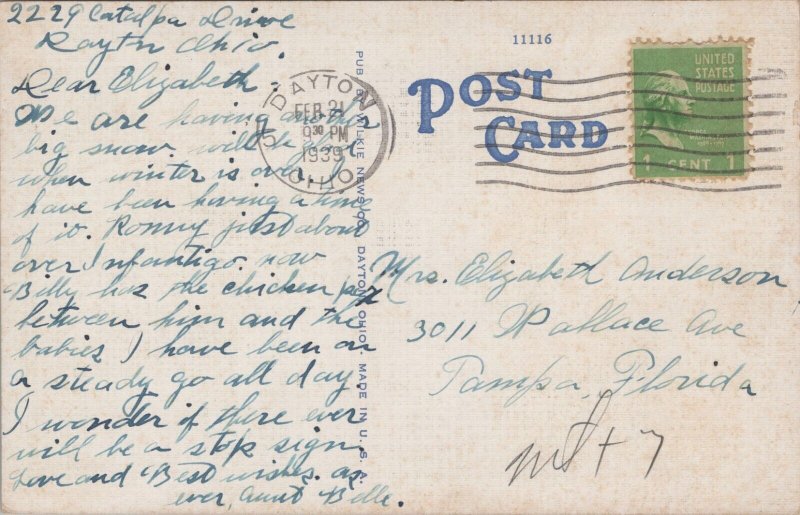 2229 Catalpa Drive
Dayton Ohio.
Dear Elizabeth:
We are having another
big snow. will be glad
when winter is over,
have been having a time
of it. Ronny just about
over Infantigo. now
Billy has the chicken pox
between him and the
babies I have been on
a steady go all day
I wonder if there ever
will be a stop sign
Love and Best wishes. as
ever, Aunt Belle.
PUB. BY WILKIE NEWS CO., DAYTON, OHIO. MADE IN U. S. A.
11116
POST
CARD
DAYTON
FEB 21
9 30 PM
1939
OHIO
UNITED
STATES
POSTAGE
1 CENT 1
Mrs. Elizabeth Anderson
3011 Wallace Ave
Tampa, Florida